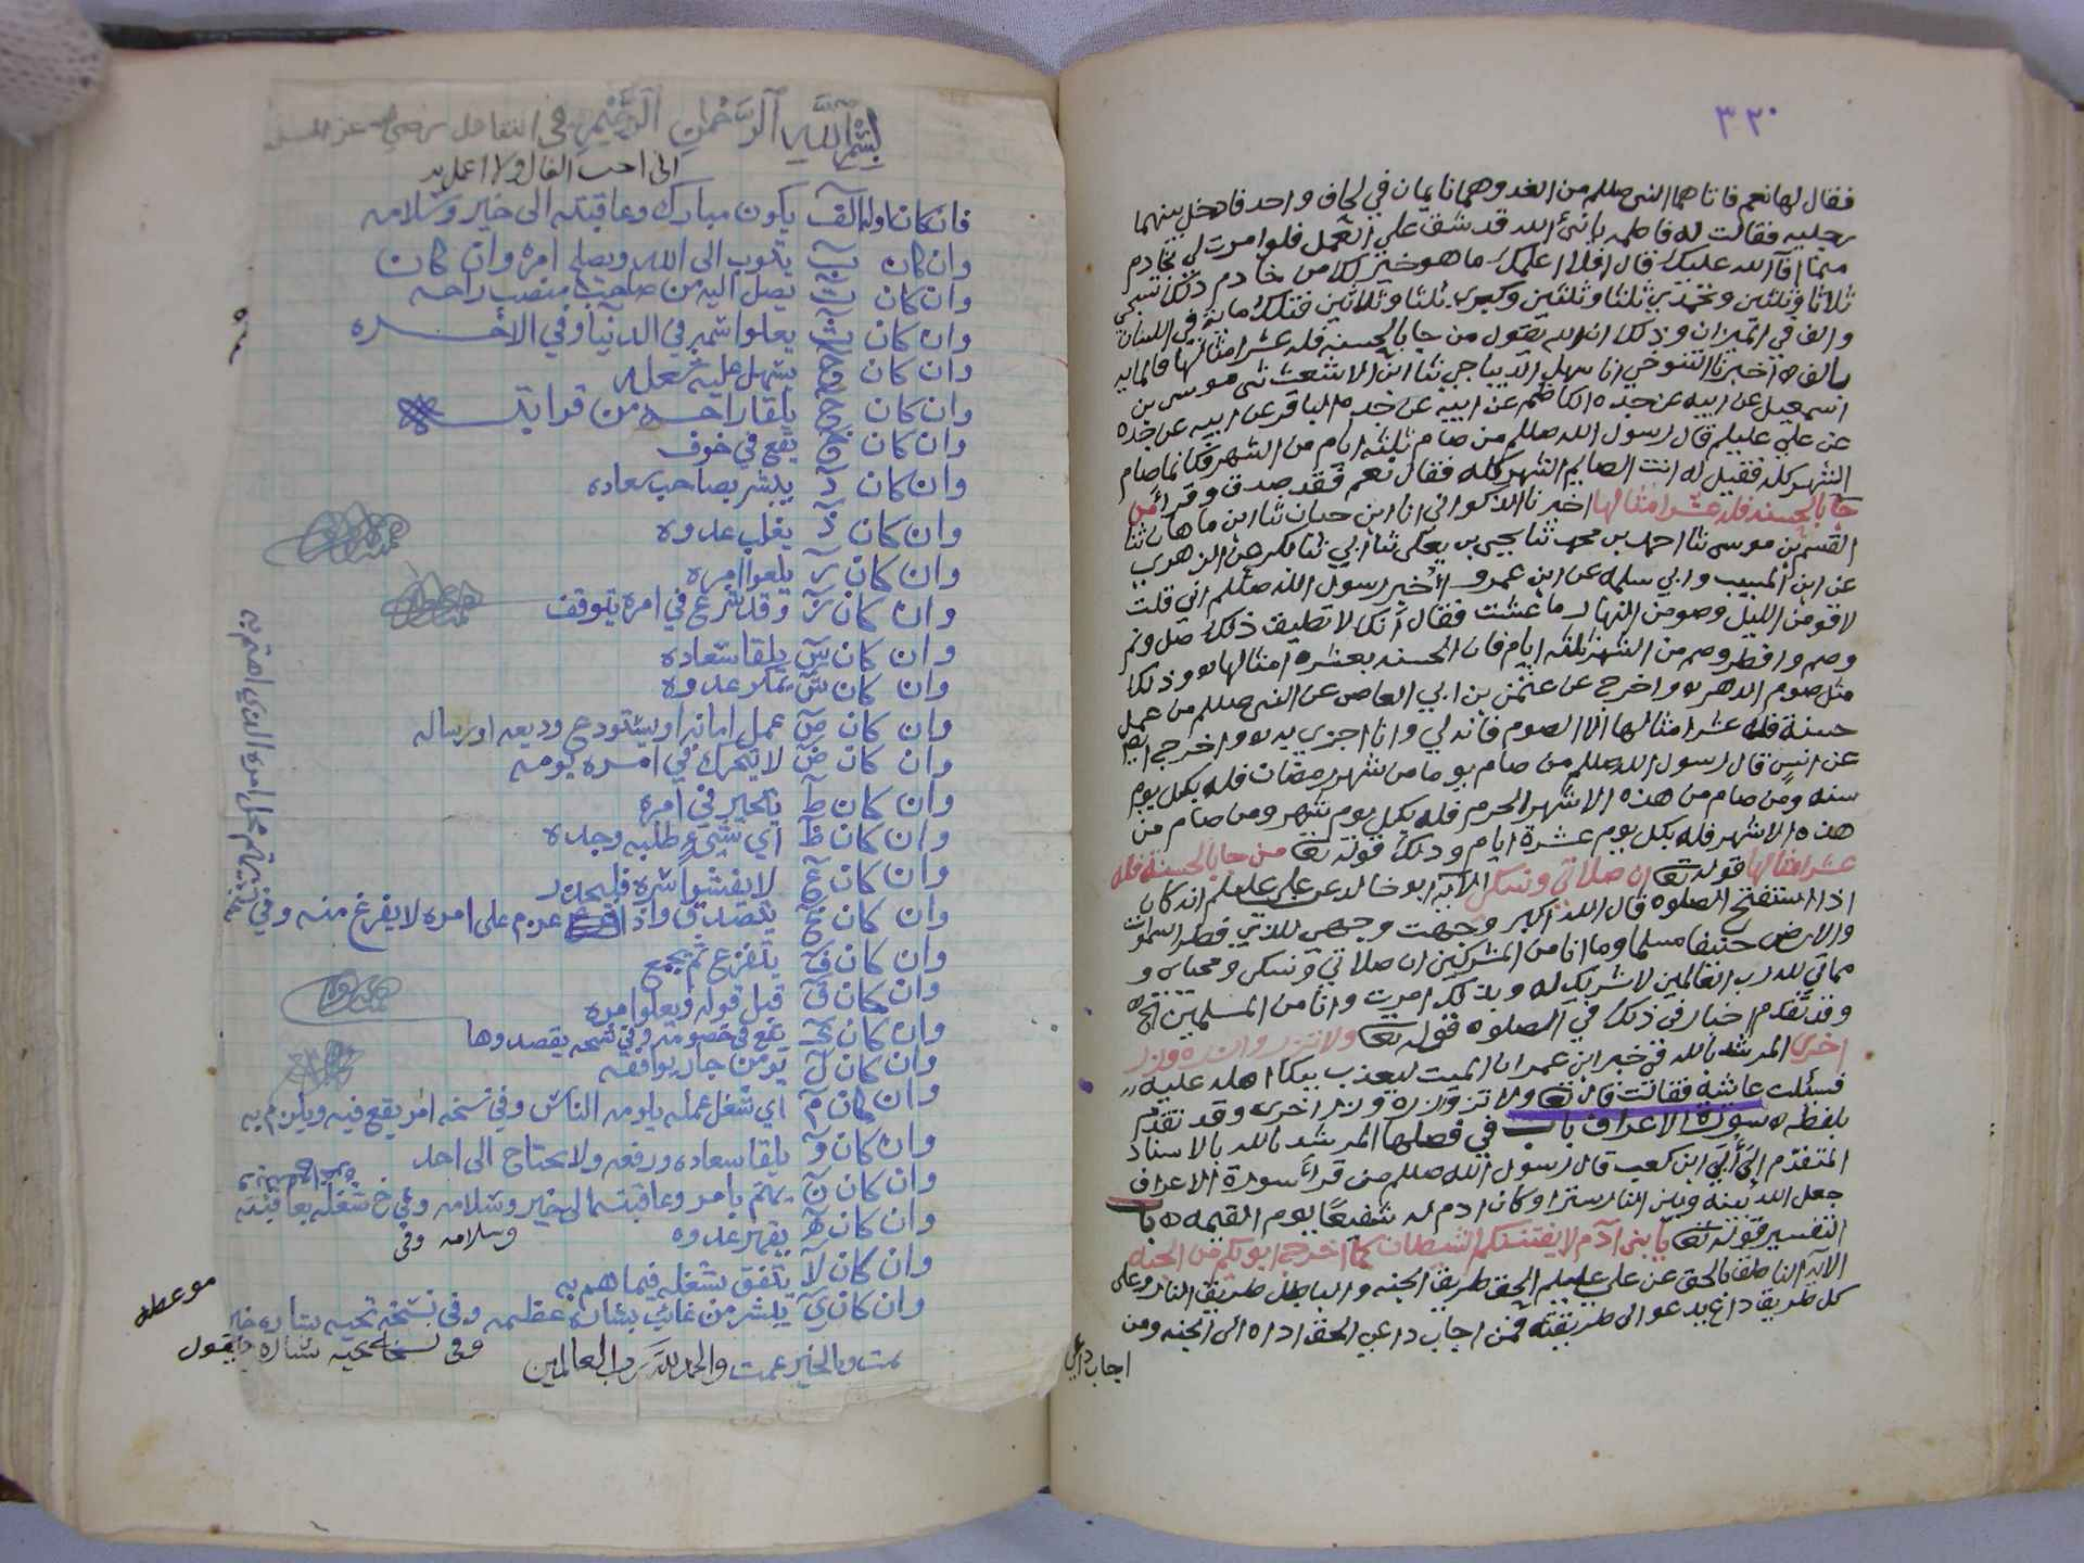 ٣٢٠
فقال لها نعم فاتاهما النبي صللم من الغد وهما نايمان في لحاف واحد فادخل بينهما
رجليه فقالت له فاطمه يا نبئ الله قد شق علي العمل فلو امرت لي بخادم
مما افآ الله عليك قال افلا اعلمك ما هو خير لك من خادم ذلك تسبحي
ثلاثا وثلثين وتحمدي ثلثا وثلثين وكبري ثلثا وثلاثين فتلك مائة في اللسان
والف في الميزان وذلك ان الله يقول من جا بالحسنه فله عشر امثالها فالمايه
بالف ه اخبرنا التنوخي انا سهل الديباجي ثنا ابن الاشعث ثنى موسى بن
اسمعيل عن ابيه عن جده الكاظم عن ابيه عن جده الباقر عن ابيه عن جده
عن علي عليلم قال رسول الله صللم من صام ثلثه ايام من الشهر فكانما صام
الشهر كله فقيل له انت الصايم الشهر كله فقال نعم فقد صدق وقرأ من
جآ بالحسنه فله عشر امثالها اخبرنا الذكواني انا ابن حبان ثنا ابن ماهان ثنا
القسم بن موسى ثنا احمد بن محمد ثنا يحيى بن يعلى ثنا ابي ثنا بكر عن الزهري
عن ابن المسيب وابي سلمه عن ابن عمرو اُخبر رسول الله صللم اني قلت
لاقومن الليل وصومن النهار ما عشت فقال انك لا تطيق ذلك صل ونم
وصم وافطر وصم من الشهر ثلثه ايام فان الحسنه بعشره امثالها وذلك
مثل صوم الدهر واخرج عن عثمن بن ابي العاص عن النبي صللم من عمل
حسنة فله عشر امثالها الا الصوم فانه لي وانا اجزي به واخرج ايضا
عن انس قال رسول الله صللم من صام يوما من شهر رمضان فله بكل يوم
سنه ومن صام من هذه الاشهر الحرم فله بكل يوم شهر ومن صام من
هذه الاشهر فله بكل يوم عشرة ايام وذلك قوله تعا من جا بالحسنة فله
عشر امثالها قوله تعا ان صلاتي ونسكي الآيه ابو خالد عن علي عليلم انه كان
اذا استفتح الصلوه قال الله اكبر وجهت وجهي للذي فطر السموات
والارض حنيفا مسلما وما انا من المشركين ان صلاتي ونسكي ومحياي و
مماتي لله رب العالمين لا شريك له وبذلك امرت وانا من المسلمين
وقد تقدم اخبار في ذلك في الصلوه قوله تعا ولا تزر وازره وزر
اخرى المرشد بالله في خبر ابن عمر ان الميت ليعذب ببكا اهله عليه
فسئلت عائشة فقالت قال تعا ولا تزر وازره وزر اخرى وقد تقدم
بلفظه ه سورة الاعراف باب في فضلها المرشد بالله بالاسناد
المتقدم الى أبي ابن كعب قال رسول الله صللم من قرأ سورة الاعراف
جعل الله بينه وبين النار سترا وكان ادم له شفيعًا يوم القيمه ه باب
التفسير قوله تعا يا بني آدم لا يفتننكم الشيطان كما اخرج ابويكم من الجنه
الآيه الناطق بالحق عن علي عليلم الحق طريق الجنه والباطل طريق النار وعلى
كل طريق داع يدعو الى طريقته فمن اجاب داعي الحق اداه الى الجنه ومن
اجاب داعي
بِسْمِ اللّٰهِ الرَّحْمٰنِ الرَّحْيمِ في التفاءل
اني احب الفال ولا اعمل به
فان كان اوله الف يكون مبارك وعاقبته الى خير وسلامه
وان كان ب يتوب الى الله ويصلح امره وان كان
وان كان ت يصل اليه من صاحب منصب راحه
وان كان ث يعلوا شمير في الدنيا وفي الاخره
وان كان ج يسهل عليه شغله
وان كان ح يلقا راحه من قرابته
وان كان خ يقع في خوف
وان كان د يبشر بصاحب سعاده
وان كان ذ يغلب عدوه
وان كان ر يلعوا امره
وان كان ز وقد شرع في امره يتوقف
وان كان س يلقا سعاده
وان كان ش يملا عدوه
وان كان ص عمل امانه او يستودع وديعه او رساله
وان كان ض لا يتحرك في امره يومه
وان كان ط يتحير في امره
وان كان ظ اي شيىءٍ طلبه وجده
وان كان ع لا يفشوا سره فليحذر
وان كان غ يتصدق واذا عزم على امره لا يفرغ منه وفي
وان كان ف يتفزع ثم يجمع
وان كان ق قبل قوله ويعلوا امره
وان كان ك يقع في خصومه وفي نسخه يقصدوها
وان كان ل يؤمن جار يوافقه
وان كان م اي شغل عمله يلومه الناس وفي نسخه امر يقع فيه ويلزم به
وان كان و يلقا سعاده ورفعه ولا يحتاج الى احد
وان كان ن يهتم بامر وعاقبته الى خير وسلامه وفي خ شغله بعاقبته
وسلامه وفي
وان كان ه يقهر عدوه
وان كان لا يتفق بشغله فيما هم به
وان كان ي يبشر من غائب بشاره عظيمه وفي نسخة تجيه بشاره خير
وفي نسخة تجيه بشاره
تمت وبالخير عمت والحمد لله رب العالمين
موعظه
يقول